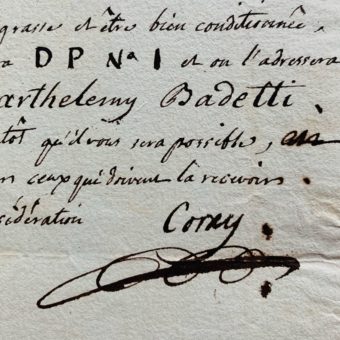 grasse et être bien conditionnée,
a D P Nº I et on l'adressera
arthelemy Badetti
tôt qu'il vous sera possible,
n ceux qui doivent la recevoir.
sidération Corray